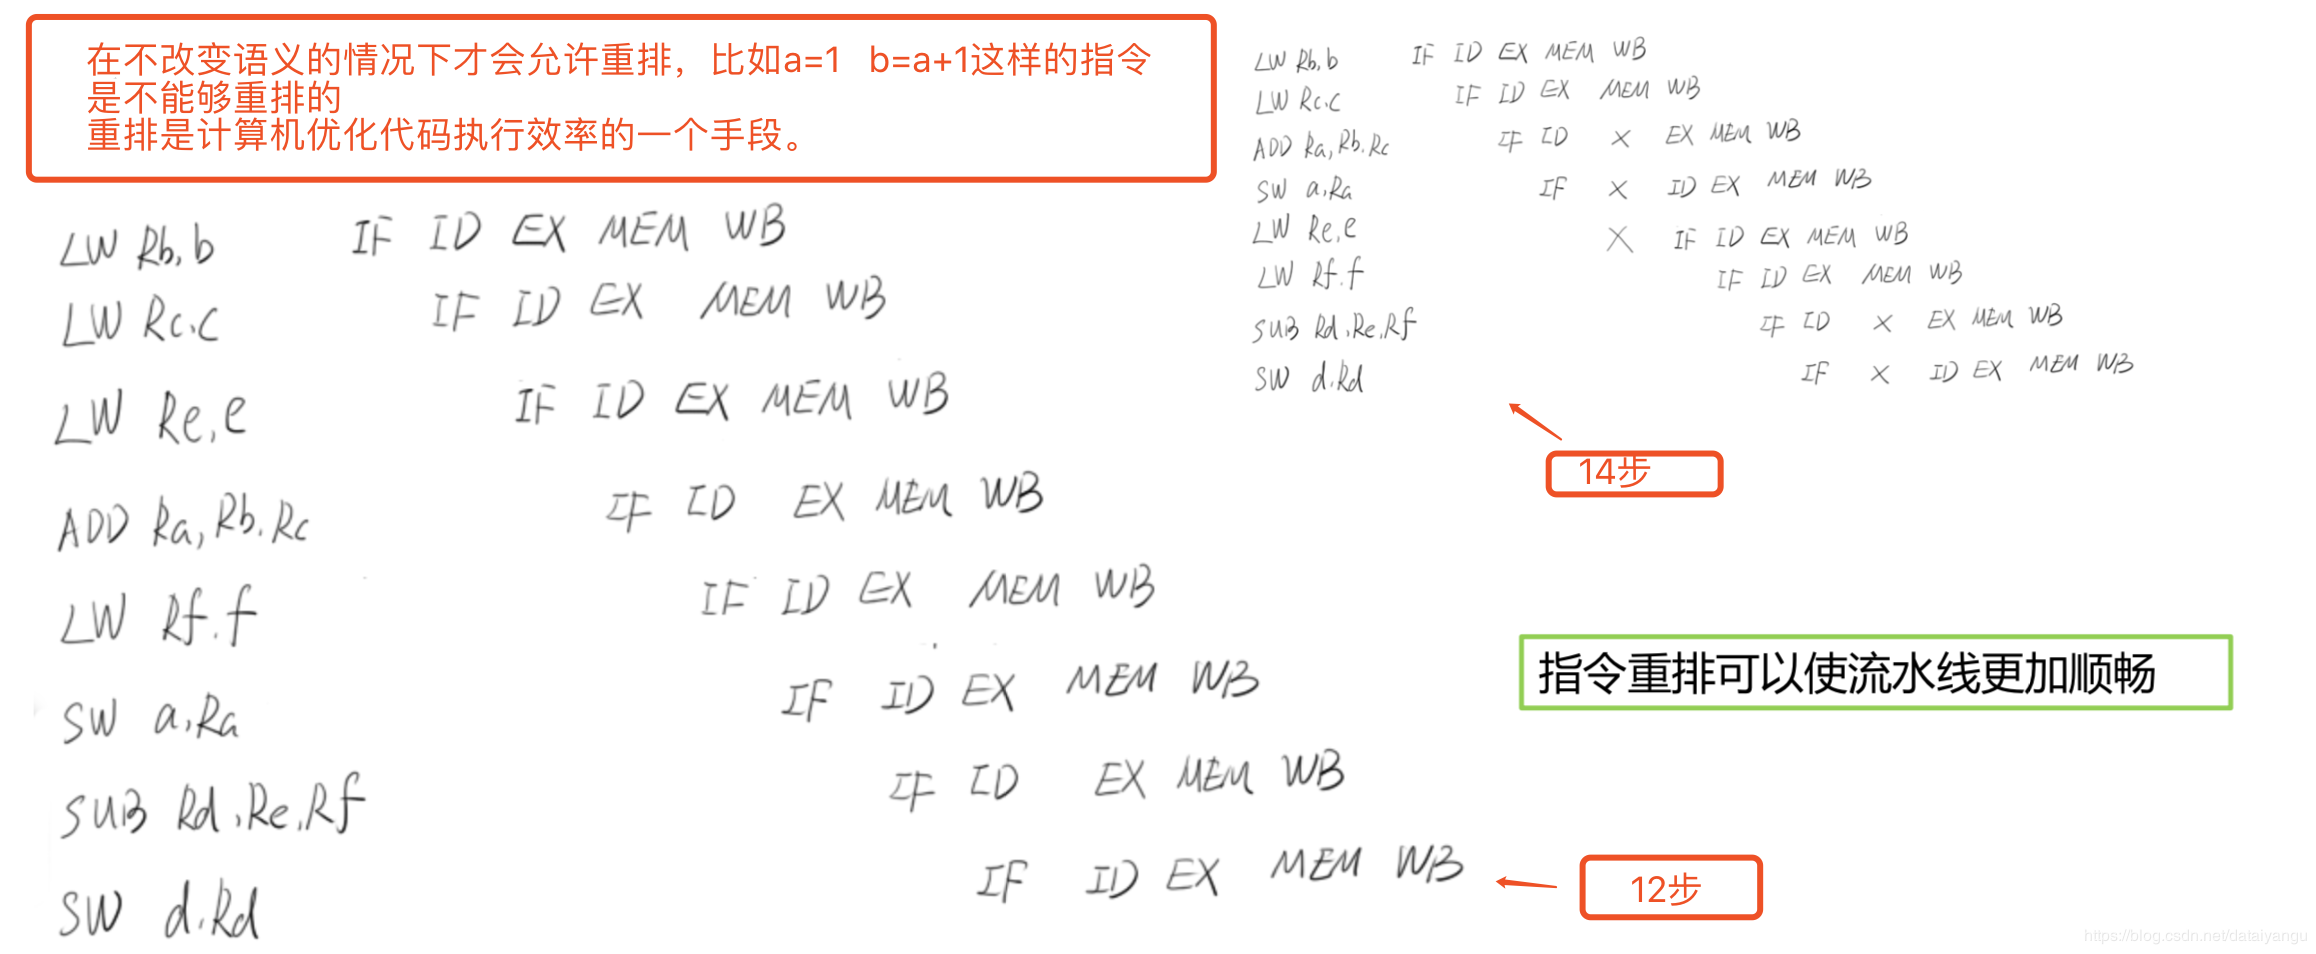 在不改变语义的情况下才会允许重排，比如a=1   b=a+1这样的指令
是不能够重排的
重排是计算机优化代码执行效率的一个手段。
LW Rb,b IF ID EX MEM WB
LW Rc.c IF ID EX MEM WB
LW Re,e IF ID EX MEM WB
ADD Ra,Rb.Rc IF ID EX MEM WB
LW Rf.f IF ID EX MEM WB
SW a,Ra IF ID EX MEM WB
SUB Rd,Re,Rf IF ID EX MEM WB
SW d.Rd IF ID EX MEM WB
12步
LW Rb,b IF ID EX MEM WB
LW Rc.c IF ID EX MEM WB
ADD Ra,Rb.Rc IF ID × EX MEM WB
SW a,Ra IF × ID EX MEM WB
LW Re,e × IF ID EX MEM WB
LW Rf.f IF ID EX MEM WB
SUB Rd,Re,Rf IF ID × EX MEM WB
SW d.Rd IF × ID EX MEM WB
14步
指令重排可以使流水线更加顺畅
https://blog.csdn.net/dataiyangu